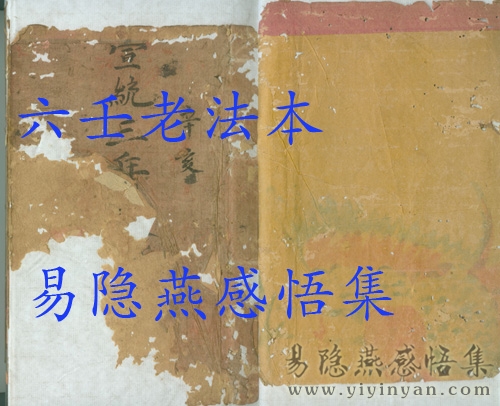 宣統三年
辛亥
六壬老法本
易隐燕感悟集
易隐燕感悟集
www.yiyinyan.com